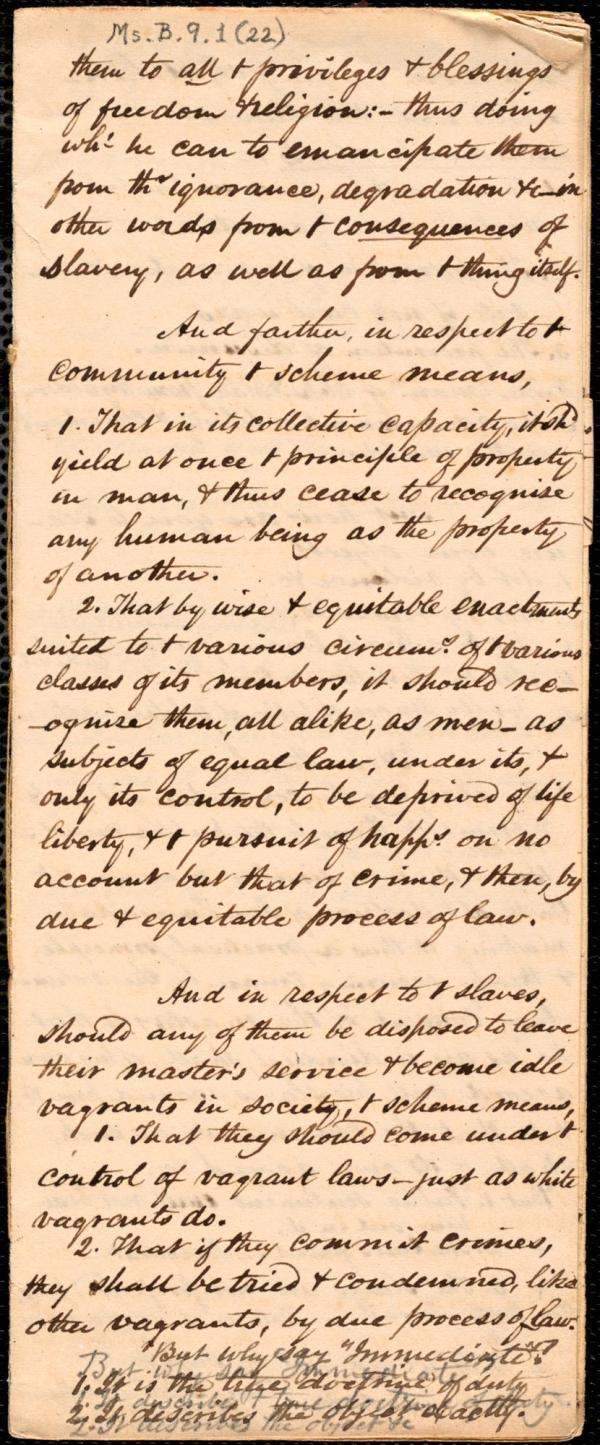 Ms. B. 9. 1 (22)
them to all t privileges & blessings
of freedom & religion:- thus doing
wht he can to emancipate them
from thr ignorance, degradation &c - in
other words from t consequences of
slavery, as well as from t thing itself.
And farther, in respect to t
community t scheme means,
1. That in its collective capacity, it shd
yield at once t principle of property
in man, & thus cease to recognise
any human being as the property
of another.
2. That by wise & equitable enactments
suited to t various circums. of t various
classes of its members, it should rec-
-ognize them, all alike, as men - as
subjects of equal law, under its, &
only its control, to be deprived of life
liberty, & t pursuit of happs. on no
account but that of crime, & then, by
due & equitable process of law.
And in respect to t slaves,
should any of them be disposed to leave
their master's service & become idle
vagrants in society, t scheme means,
1. That they should come under t
control of vagrant laws - just as white
vagrants do.
2. That if they commit crimes,
they shall be tried & condemned, like
other vagrants, by due process of law.
But why say "Immediate"?
1. It is the true doctrine of duty
2. It describes the object exactly.